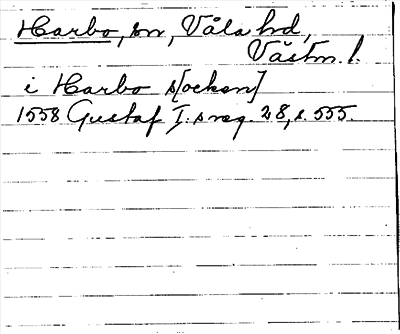 Harbo, sn, Våla hd,
Västm. l.
i Harbo s[ocken]
1558 Gustaf I:s reg. 28, s. 555.